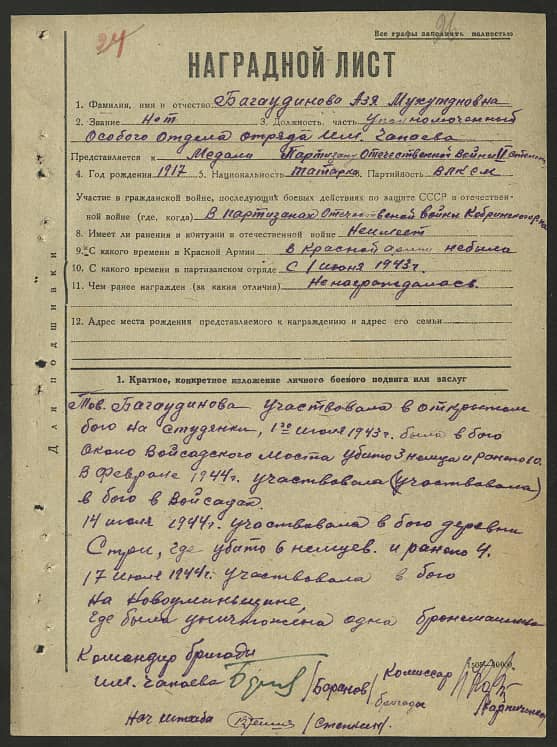 Все графы заполнять полностью
24
НАГРАДНОЙ ЛИСТ
1. Фамилия, имя и отчество Багаудинова Азя Мухутдновна
2. Звание Нет 3. Должность, часть Уполномоченный
Особого отдела отряда им. Чапаева
Представляется к Медали Партизан Отечественной Войны II степени
4. Год рождения 1917 5. Национальность татарка 6. Партийность ВЛКСМ
Участие в гражданской войне, последующих боевых действиях по защите СССР и отечествен-
ной войне (где, когда) В партизанах Отечественой Войны Кобринского р-на
8. Имеет ли ранения и контузии в отечественной войне Неимеет
9. С какого времени в Красной Армии В Красной армии небыла
10. С какого времени в партизанском отряде С 1 июня 1943 г.
11. Чем ранее награжден (за какия отличия) Ненаграждалась.
12. Адрес места рождения представляемого к награждению и адрес его семьи
Для подшивки
1. Краткое, конкретное изложение личного боевого подвига или заслуг
Тов. Багаудинова участвовала в открытом
бою на Студянки, 1го июля 1943 г. была в бою
около Войсадского моста убито 3 немца и ранено 10.
В феврале 1944 г. участвовала (участвовала)
в бою в Войсадах.
14 июля 1944 г. участвовала в бою деревни
Стри, где убито 6 немцев. и ранено 4.
17 июля 1944 г. участвовала в бою
На
где была уничтожена одна бронемашина
Командир бригады
им. Чапаева /Баранов/ Комиссар
бригады
Нач штаба /Степкин/.